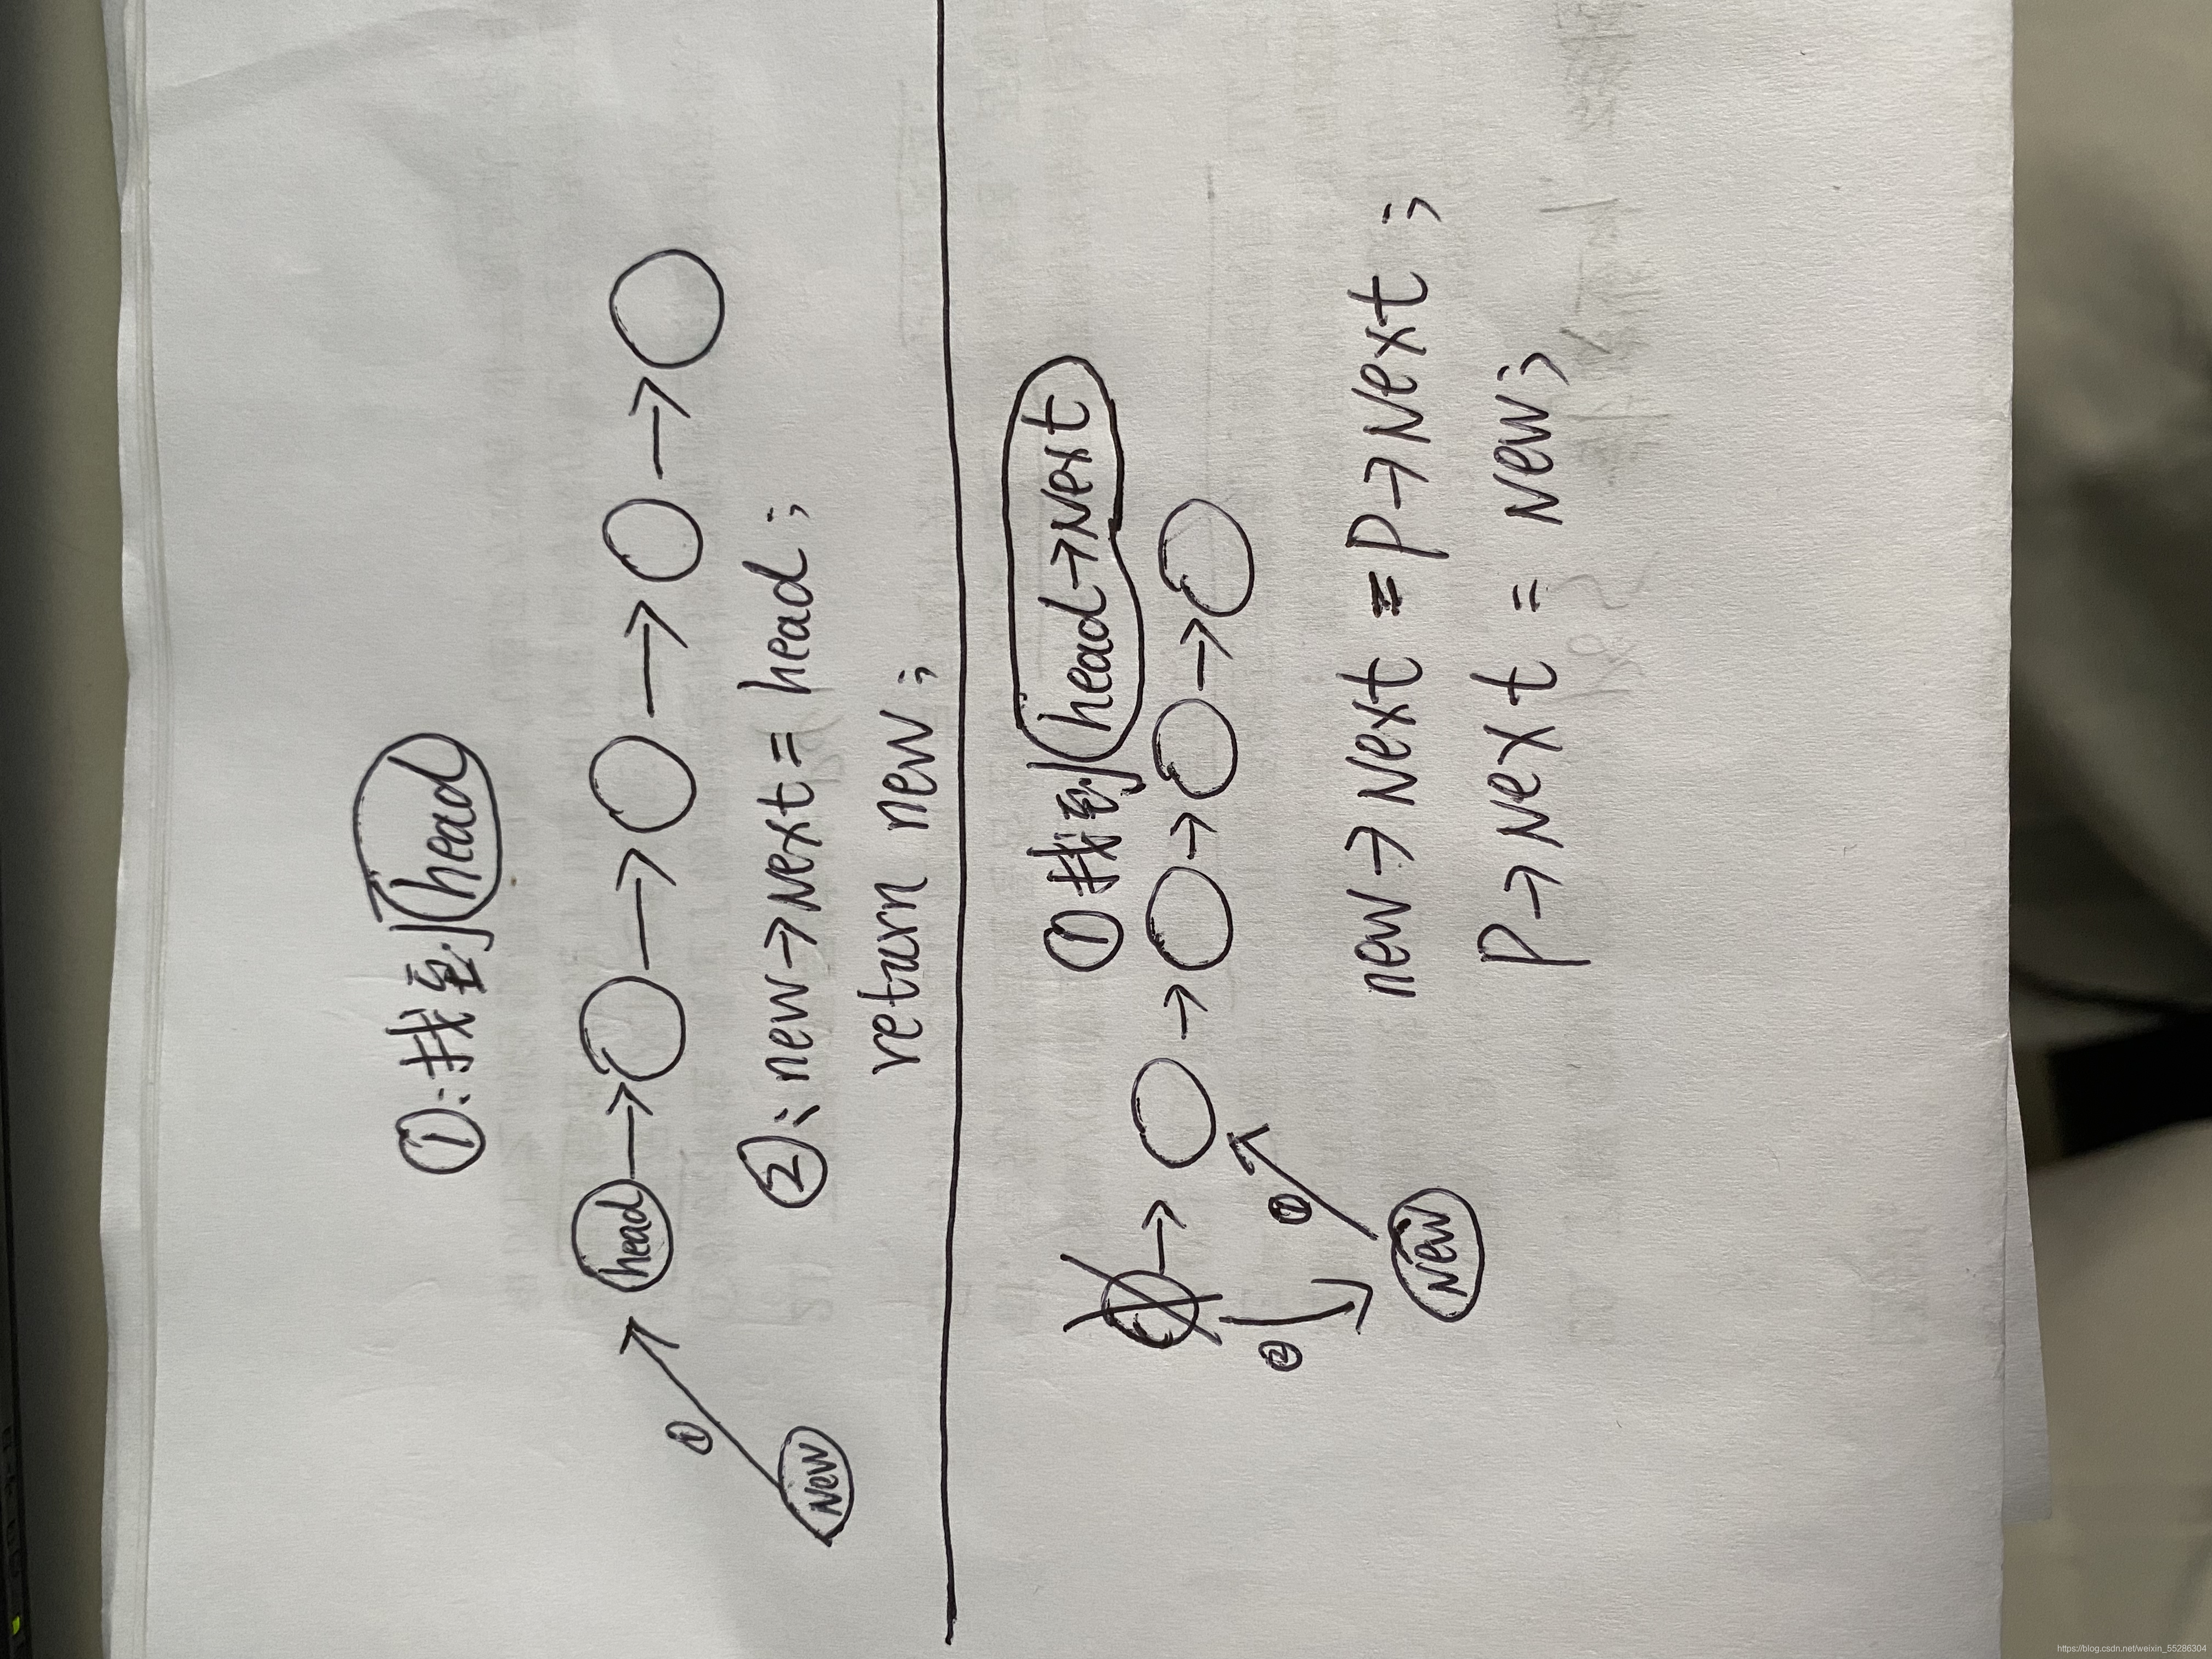 ①:找到head
head
①
New
②:new→Next=head;
return new;
①找到head→Next
①
②
New
new→Next=P→Next;
P→Next=New;
https://blog.csdn.net/weixin_55286304